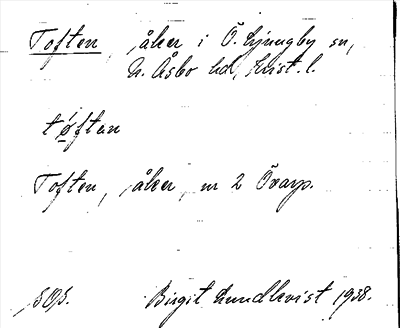 Toften, åker i Ö. Ljungby sn,
N. Åsbo hd, Krist. l.
tøften
Toften, åker, nr 2 Övarp.
Birgit Lundkvist 1938.